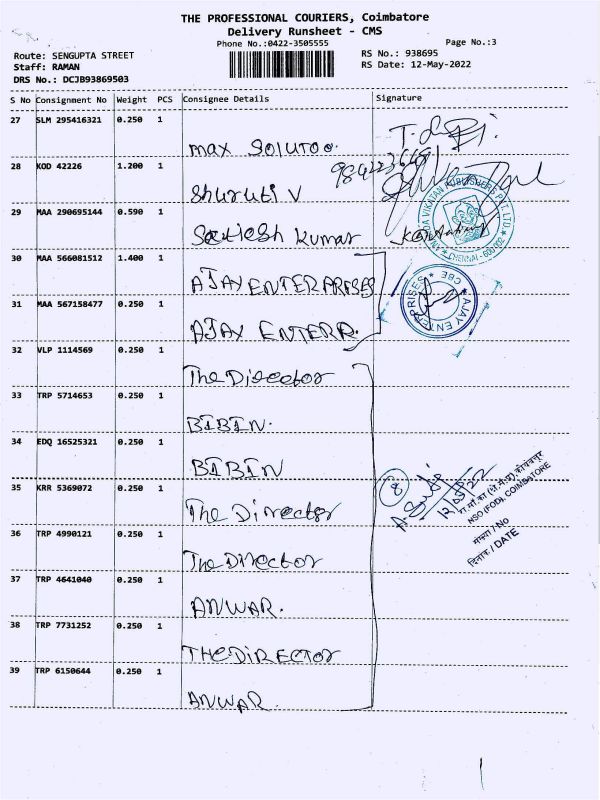 THE PROFESSIONAL COURIERS, Coimbatore
Delivery Runsheet - CMS
Phone No.:0422-3505555
Page No.:3
Route: SENGUPTA STREET
RS No.: 938695
Staff: RAMAN
RS Date: 12-May-2022
DRS No.: DCJB93869503
S No Consignment No Weight PCS Consignee Details Signature
27 SLM 295416321 0.250 1
max Solutoo.
28 KOD 42226 1.200 1
Shuruti V
29 MAA 290695144 0.590 1
Sathesh Kumar
ANANDA VIKATAN PUBLISHERS PVT. LTD.
CHENNAI - 600 002
30 MAA 566081512 1.400 1
AJAY ENTERPRISES
AJAY ENTERPRISES CBE
31 MAA 567158477 0.250 1
AJAY ENTERR.
32 VLP 1114569 0.250 1
The Director
33 TRP 5714653 0.250 1
BIBIN.
34 EDQ 16525321 0.250 1
BIBIN
35 KRR 5369072 0.250 1
The Director
8
12/05/22
NSO (FOD), COIMBATORE
संख्या / No
दिनांक / DATE
36 TRP 4990121 0.250 1
The Director
37 TRP 4641040 0.250 1
ANWAR.
38 TRP 7731252 0.250 1
THE DIRECTOR
39 TRP 6150644 0.250 1
ANWAR.